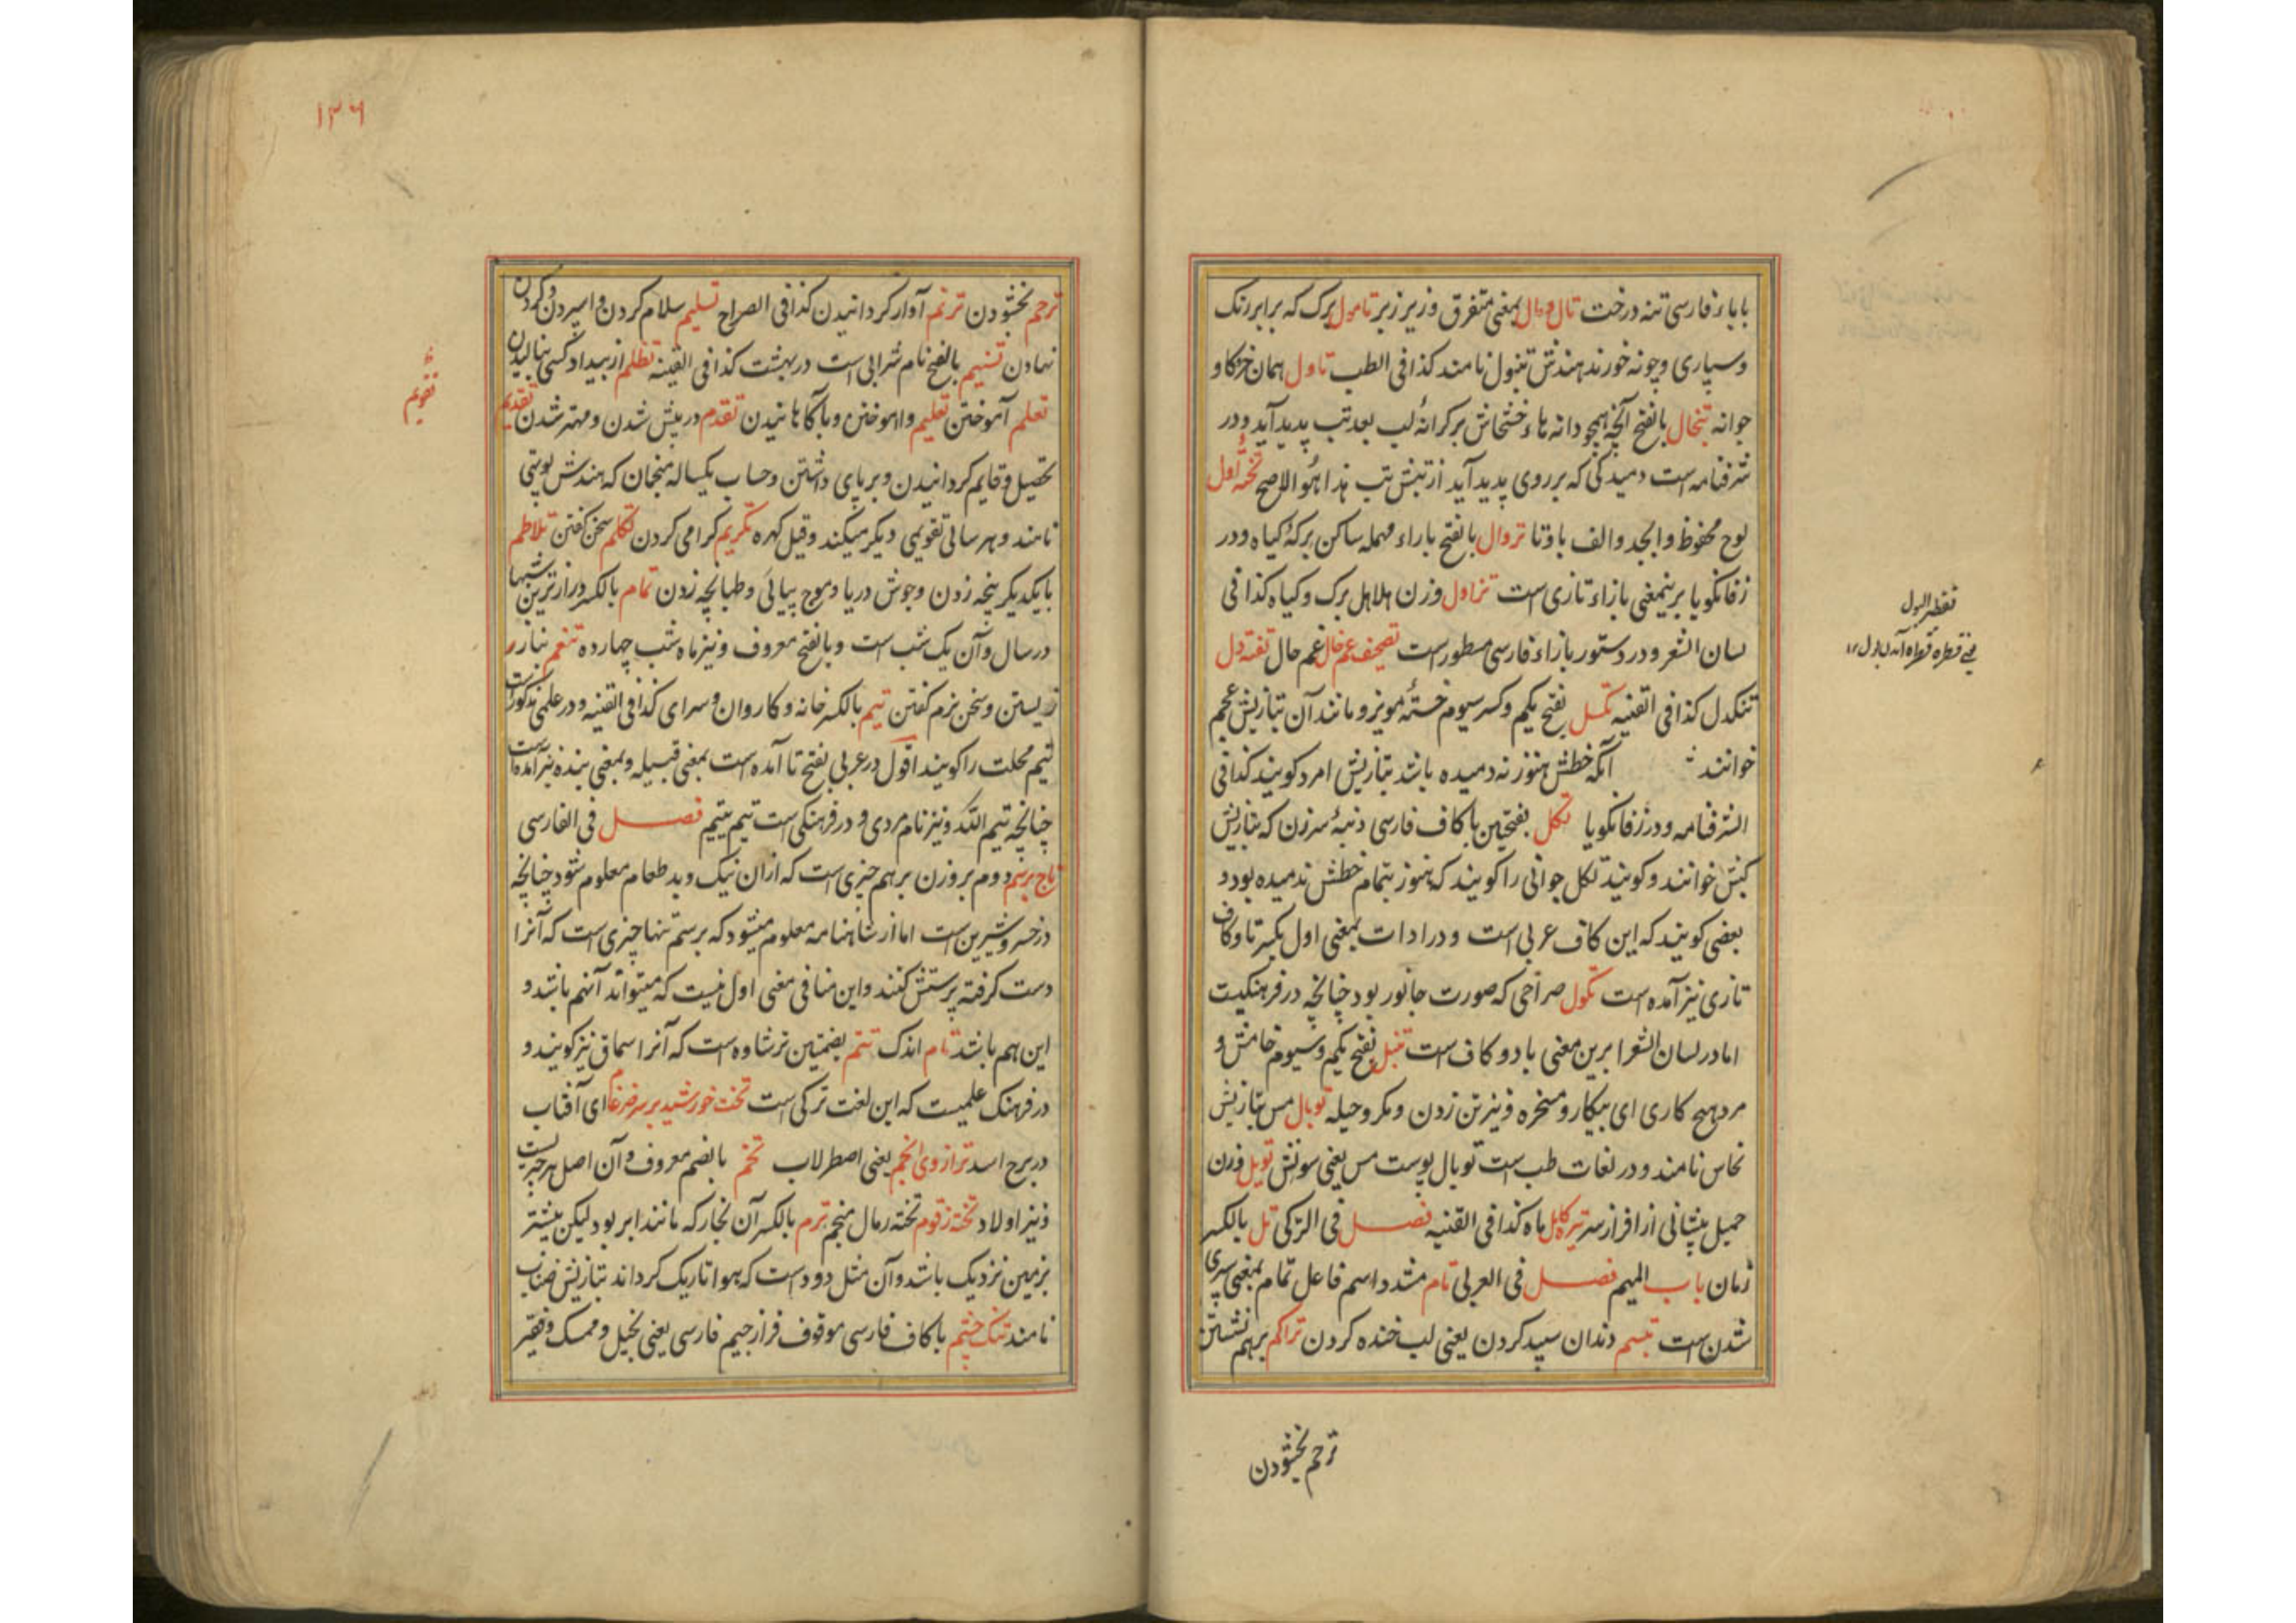 باباء فارسی تنه درخت تال ومال بمعنی متفرق وزیر زبر تامول برک که برابر انک
وسپاری وچونه خورند هندش تنبول نامند کذا فی الطب تاول همان خرکاو
جوانه تبخال بالفتح آنچه همچو دانه هاء خشخاش بر کرانهٔ لب بعد تب پدید آید ودر
شرفنامه است دمیدکی که بر روی پدید آید از تبش تب هذا هو الاصح تختهٔ اول
لوح محفوظ وابجد والف با وتا تروال بالفتح باراء مهمله ساکن برکهٔ کیاه ودر
زفانکویا برینمعنی بازاء تازی است تزاول وزن هلاهل برک وکیاه کذا فی
لسان الشعر ودر دستور بازاء فارسی مسطور است تصحیف عم خال غم حال تفته دل
تنکدل کذا فی القنیه تکسل بفتح یکم وکسر سیوم خستهٔ مویز ومانند آن بتازیش عجم
خوانند آنکه خطش هنوز نه دمیده باشد بتازیش امرد کویند کذا فی
الشرفنامه ودر زفانکویا تکل بفتحتین باکاف فارسی دنبهٔ سرزن که بتازیش
کبش خوانند وکویند تکل جوانی را کویند که هنوز بتمام خطش ندمیده بود و
بعضی کویند که این کاف عربی است ودر ادات بمعنی اول بکسر تا وکاف
تازی نیز آمده است تکول صراحی که صورت جانور بود چنانچه در فرهنکیست
اما در لسان الشعرا برین معنی با دو کاف است تنبل بفتح یکم وسیوم خامش و
مرد هیچ کاری ای بیکار ومسخره ونیز تن زدن ومکر وحیله توبال مس بتازیش
نحاس نامند ودر لغات طب است توبال پوست مس یعنی سونش تویل وزن
جمیل پیشانی از افراز سر تیرکابل ماه کذا فی القنیه فصل فی الترکی تل بالکسر
زمان باب المیم فصل فی العربی تام مشدد اسم فاعل تمام بمعنی سپری
شدن است تبسم دندان سپید کردن یعنی لب خنده کردن تراکم برهم نشستن
ترحم بخشودن
تقطیر البول
یعنی قطره قطره آمدن بول ۱۲
۱۳۶
ترحم بخشودن ترنم آواز کردانیدن کذا فی الصراح تسلیم سلام کردن واسپردن وکردن
نهادن تسنیم بالفتح نام شرابی است در بهشت کذا فی القنیه تظلم از بیداد کسی بنالیدن
تعلم آموختن تعلیم واموختن وبا کاهانیدن تقدم در پیش شدن ومهتر شدن تقدیم
تحصیل وقایم کردانیدن وبر پای داشتن وحساب یکساله منجمان که هندش پوتهی
نامند وهر سالی تقویمی دیکر میکنند وقیل کهره تکریم کرامی کردن تکلم سخن کفتن تلاطم
بایکدیکر پنجه زدن وجوش دریا وموج پیاپی وطبانچه زدن تمام بالکسر درازترین شبها
در سال وآن یک شب است وبالفتح معروف ونیز ماه شب چهارده تنعم بناز
زیستن وسخن نرم کفتن تیم بالکسر خانه وکاروان وسرای کذا فی القنیه ودر علمی مذکور است
تیم محلت را کویند اقول در عربی بفتح تا آمده است بمعنی قبیله وبمعنی بنده نیز آمده است
چنانچه تیم الله ونیز نام مردی ودر فرهنکی است تیم یتیم فصل فی الفارسی
تاج برسم دوم بروزن برهم چیزی است که ازان نیک وبد طعام معلوم شود چنانچه
در خسرو شیرین است اما از شاهنامه معلوم میشود که برسم تنها چیزی است که آنرا
دست کرفته پرستش کنند واین منافی معنی اول نیست که میتواند آنهم باشد و
این هم باشد تام اندک تتم بضمتین ترشاوه است که آنرا سماق نیز کویند و
در فرهنک علمیست که این لغت ترکی است تخت خورشید بر سر ضرغام ای آفتاب
در برج اسد ترازوی انجم یعنی اصطرلاب تخم بالضم معروف وآن اصل هر چیز است
ونیز اولاد تخته زقوم تخته رمال منجم ترم بالکسر آن بخار که مانند ابر بود لیکن بیشتر
بزمین نزدیک باشد وآن مثل دود است که هوا تاریک کرداند بتازیش ضباب
نامند تنک چشم باکاف فارسی موقوف فراز جیم فارسی یعنی بخیل وممسک وفقیر
تقویم